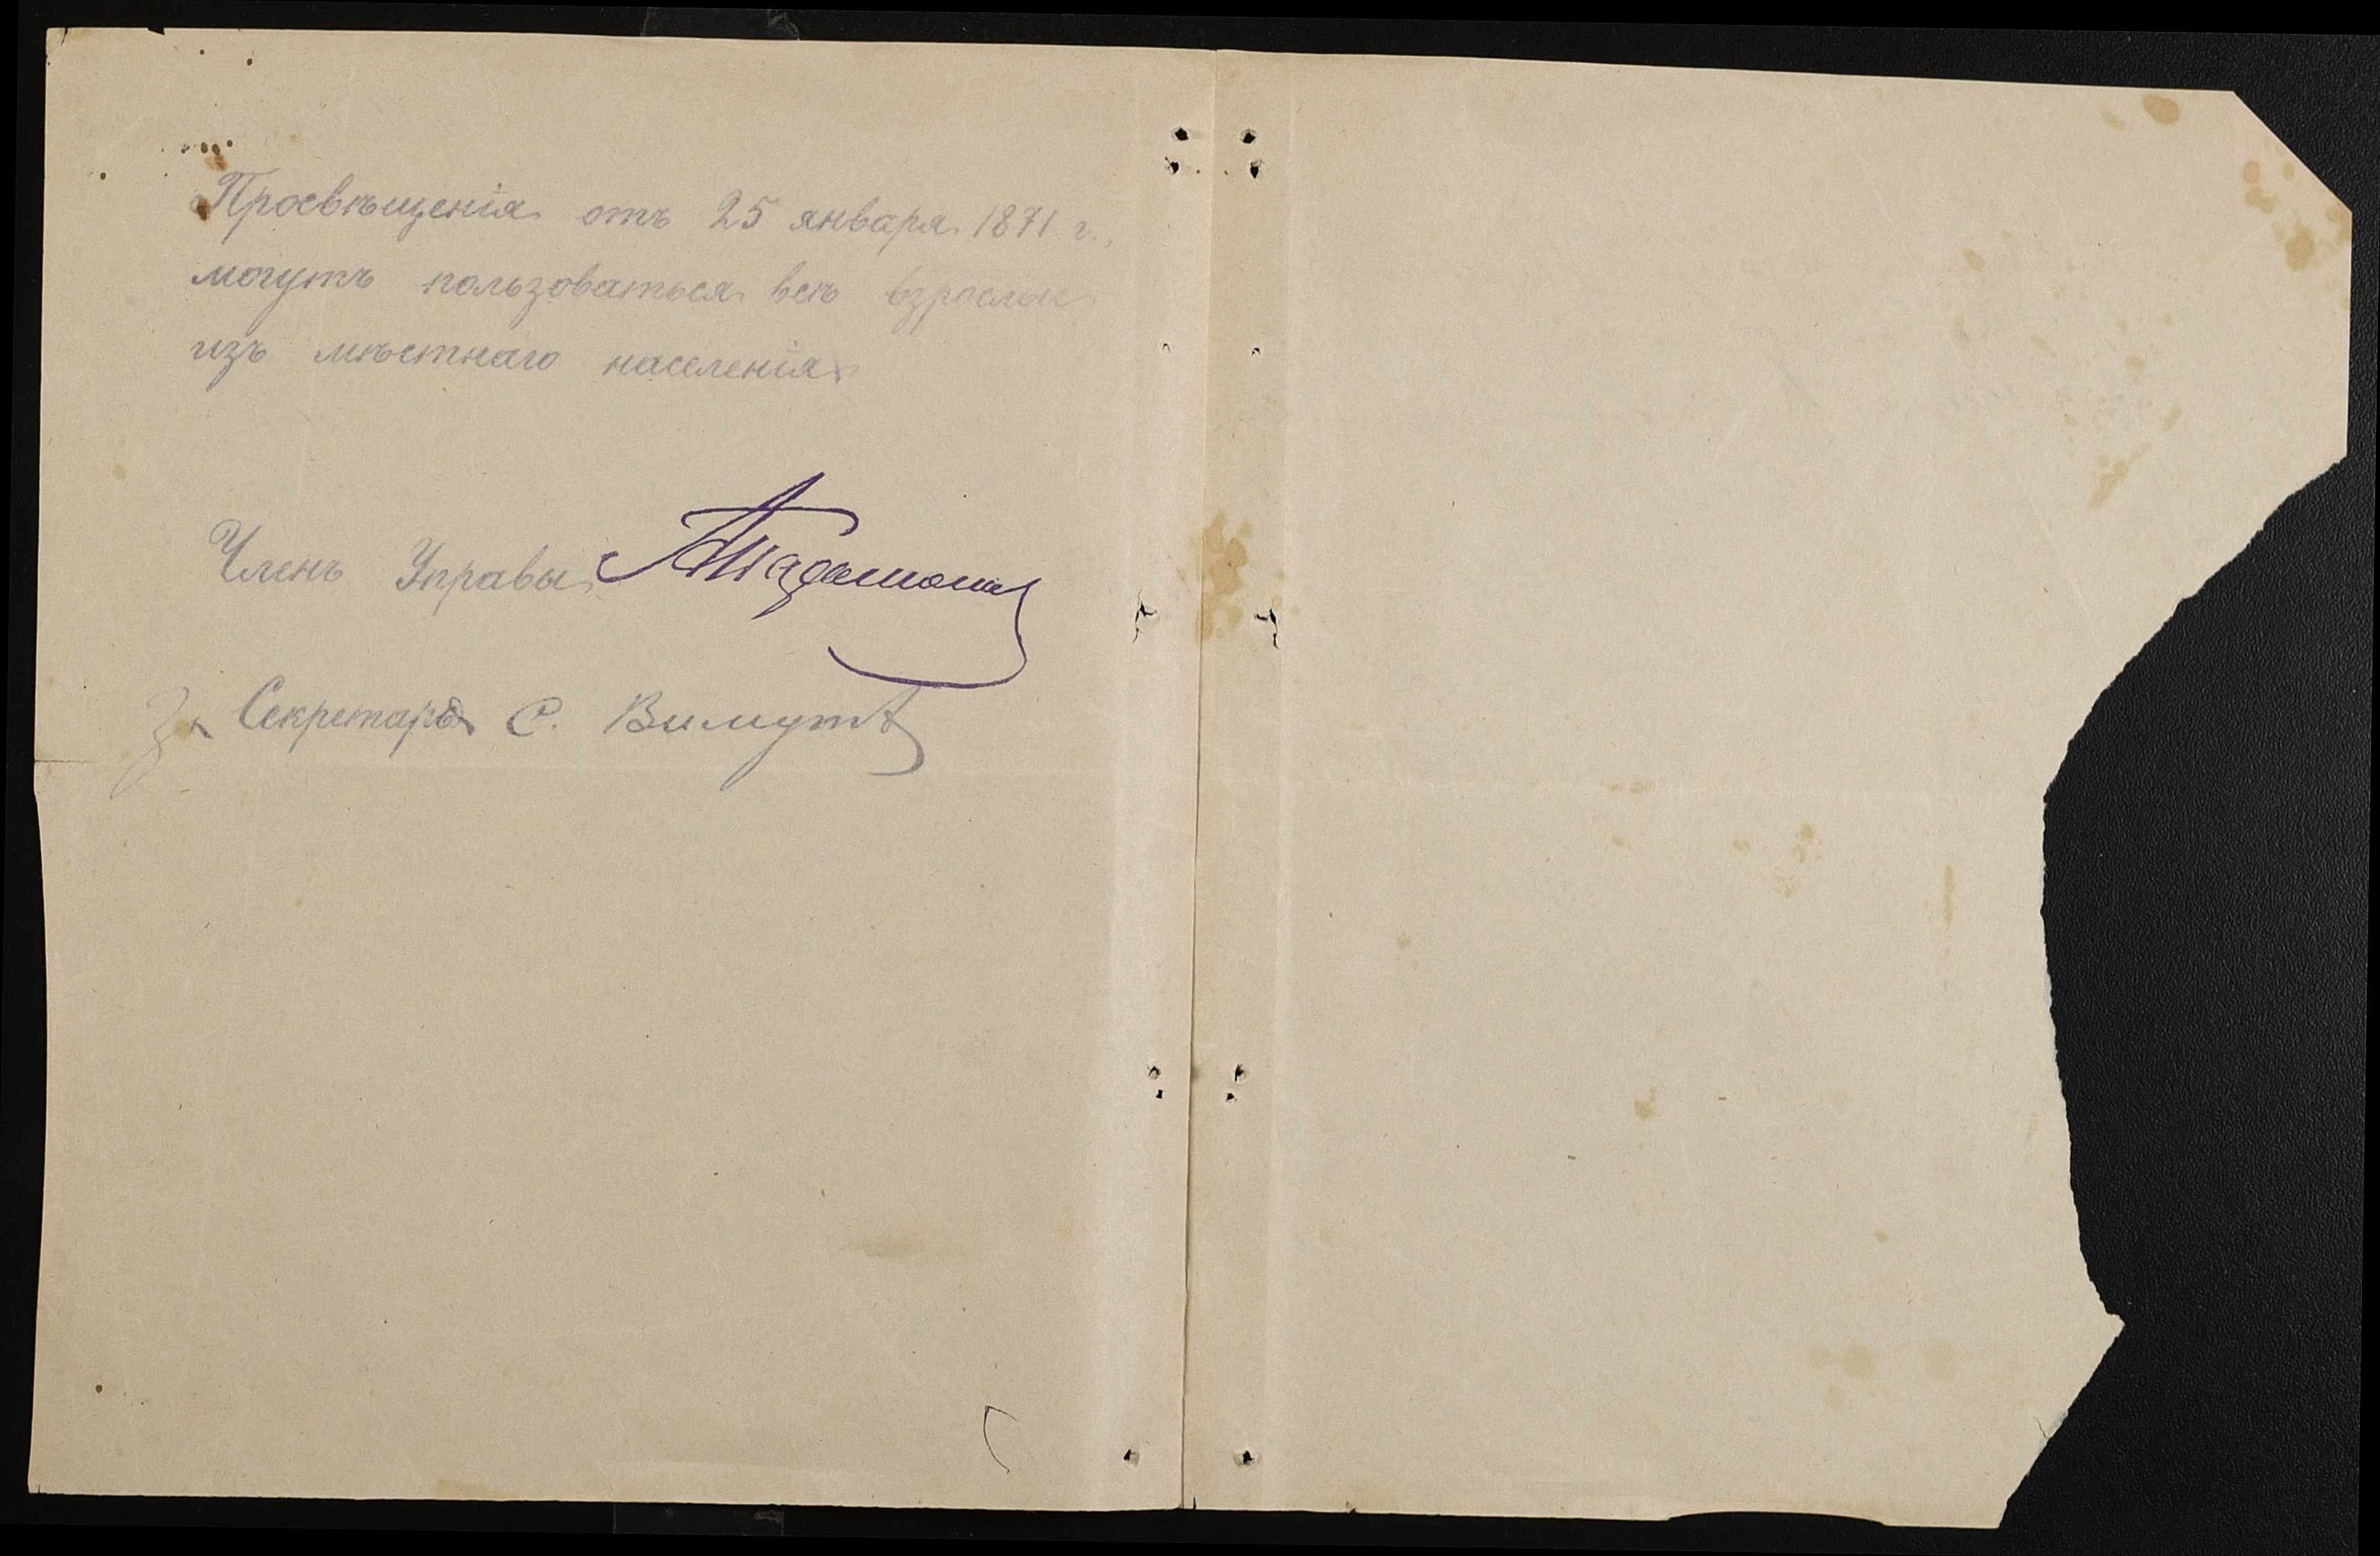 Просвѣщенія отъ 25 января 1871 г.,
могутъ пользоваться всѣ взрослые
изъ мѣстнаго населенія
Членъ Управы
За Секретаря С.